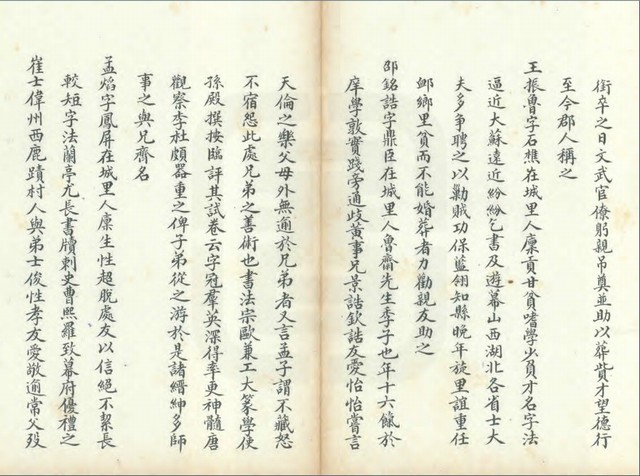 衛卒之日文武官僚躬親吊奠並助以葬貲才望德行
至今郡人稱之
王振魯字石樵在城里人廩貢甘貧嗜學少負才名字法
逼近大蘇遠近紛紛乞書及遊幕山西湖北各省士大
夫多爭聘之以勦賊功保藍翎知縣晚年旋里誼重任
卹鄉里貧而不能婚葬者力勸親友助之
邵銘誥字鼎臣在城里人魯齋先生季子也年十六餼於
庠學敦實踐旁通歧黃事兄景誥欽誥友愛怡怡嘗言
天倫之樂父母外無逾於兄弟者又言孟子謂不藏怒
不宿怨此處兄弟之善術也書法宗歐兼工大篆學使
孫殿撰按臨評其試卷云字冠羣英深得率更神髓唐
觀察李社頗器重之俾子弟從之游於是諸縉紳多師
事之與兄齊名
孟焰字鳳屏在城里人廩生性超脫處友以信絕不絜長
較短字法蘭亭尤長書牘刺史曹熙羅致幕府優禮之
崔士偉州西鹿蹟村人與弟士俊性孝友愛敬逾常父歿